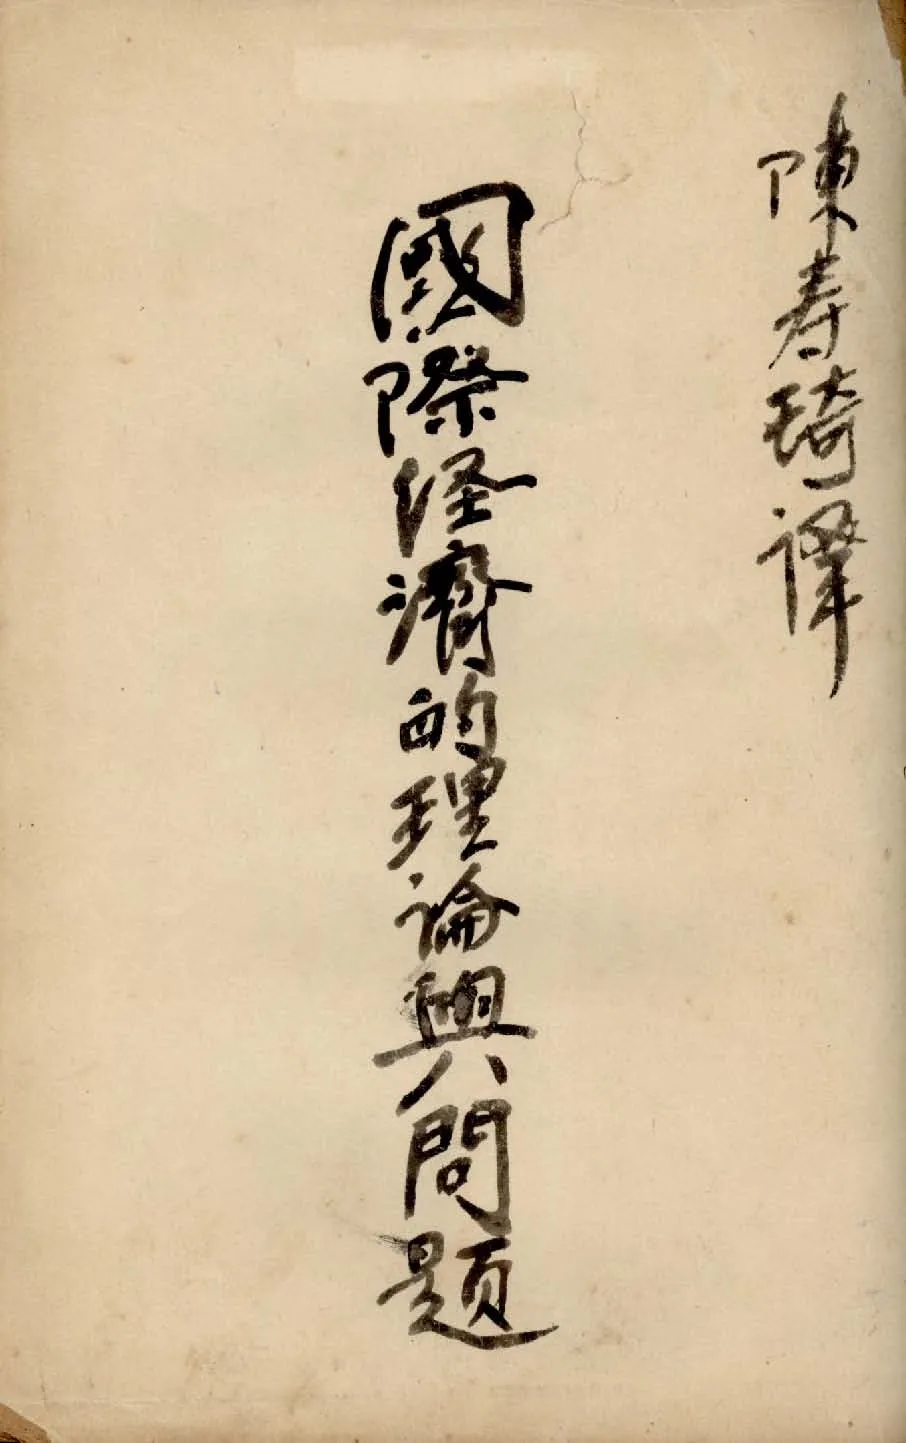 陳寿琦譯
國際経濟的理論與問題